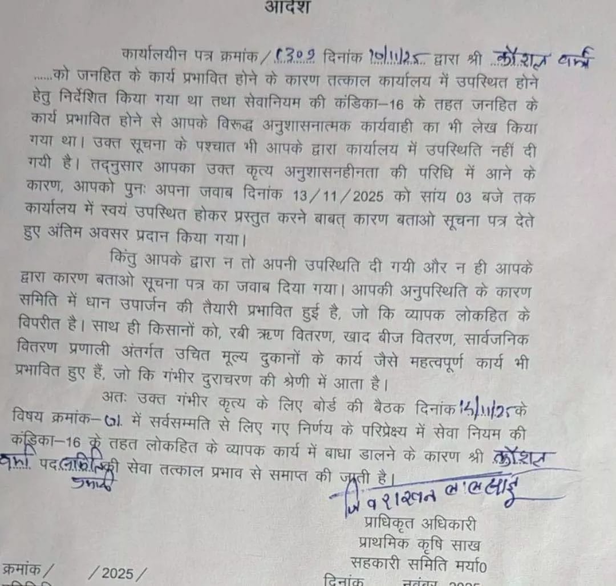 आदेश
कार्यालयीन पत्र क्रमांक/1309 दिनांक 10/11/25 द्वारा श्री कौशल वर्मा
......को जनहित के कार्य प्रभावित होने के कारण तत्काल कार्यालय में उपस्थित होने
हेतु निर्देशित किया गया था तथा सेवानियम की कंडिका-16 के तहत जनहित के
कार्य प्रभावित होने से आपके विरूद्ध अनुशासनात्मक कार्यवाही का भी लेख किया
गया था। उक्त सूचना के पश्चात भी आपके द्वारा कार्यालय में उपस्थिति नहीं दी
गयी है। तद्नुसार आपका उक्त कृत्य अनुशासनहीनता की परिधि में आने के
कारण, आपको पुनः अपना जवाब दिनांक 13/11/2025 को सांय 03 बजे तक
कार्यालय में स्वयं उपस्थित होकर प्रस्तुत करने बाबत् कारण बताओ सूचना पत्र देते
हुए अंतिम अवसर प्रदान किया गया।
किंतु आपके द्वारा न तो अपनी उपस्थिति दी गयी और न ही आपके
द्वारा कारण बताओ सूचना पत्र का जवाब दिया गया। आपकी अनुपस्थिति के कारण
समिति में धान उपार्जन की तैयारी प्रभावित हुई है, जो कि व्यापक लोकहित के
विपरीत है। साथ ही किसानों को, रबी ऋण वितरण, खाद बीज वितरण, सार्वजनिक
वितरण प्रणाली अंतर्गत उचित मूल्य दुकानों के कार्य जैसे महत्वपूर्ण कार्य भी
प्रभावित हुए हैं, जो कि गंभीर दुराचरण की श्रेणी में आता है।
अतः उक्त गंभीर कृत्य के लिए बोर्ड की बैठक दिनांक के
विषय क्रमांक- में सर्वसम्मति से लिए गए निर्णय के परिप्रेक्ष्य में सेवा नियम की
कंडिका-16 के तहत लोकहित के व्यापक कार्य में बाधा डालने के कारण श्री कौशल
वर्मा पद की सेवा तत्काल प्रभाव से समाप्त की जाती है।
प्रभारी
प्राधिकृत अधिकारी
प्राथमिक कृषि साख
सहकारी समिति मर्या0
क्रमांक/ /2025/
दिनांक नवंबर 2025